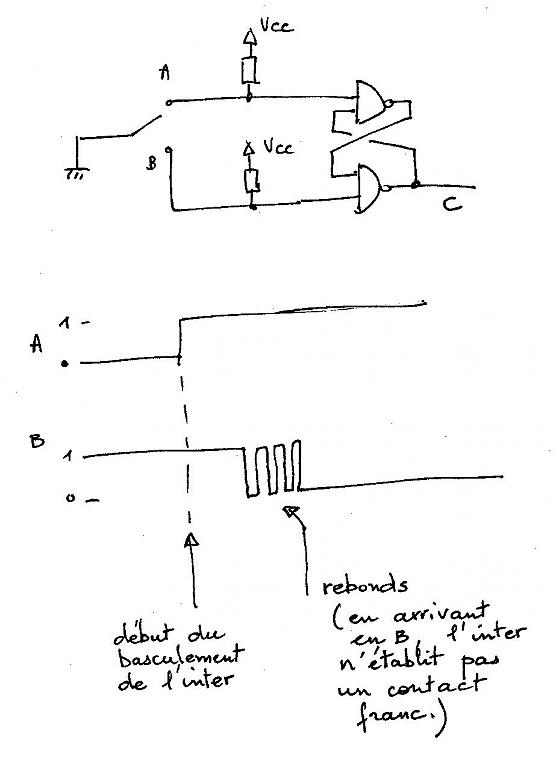 Vcc
A
Vcc
B
C
1
A
0
B
1
0
début du
basculement
de l'inter
rebonds
(en arrivant
en B, l'inter
n'établit pas
un contact
franc.)